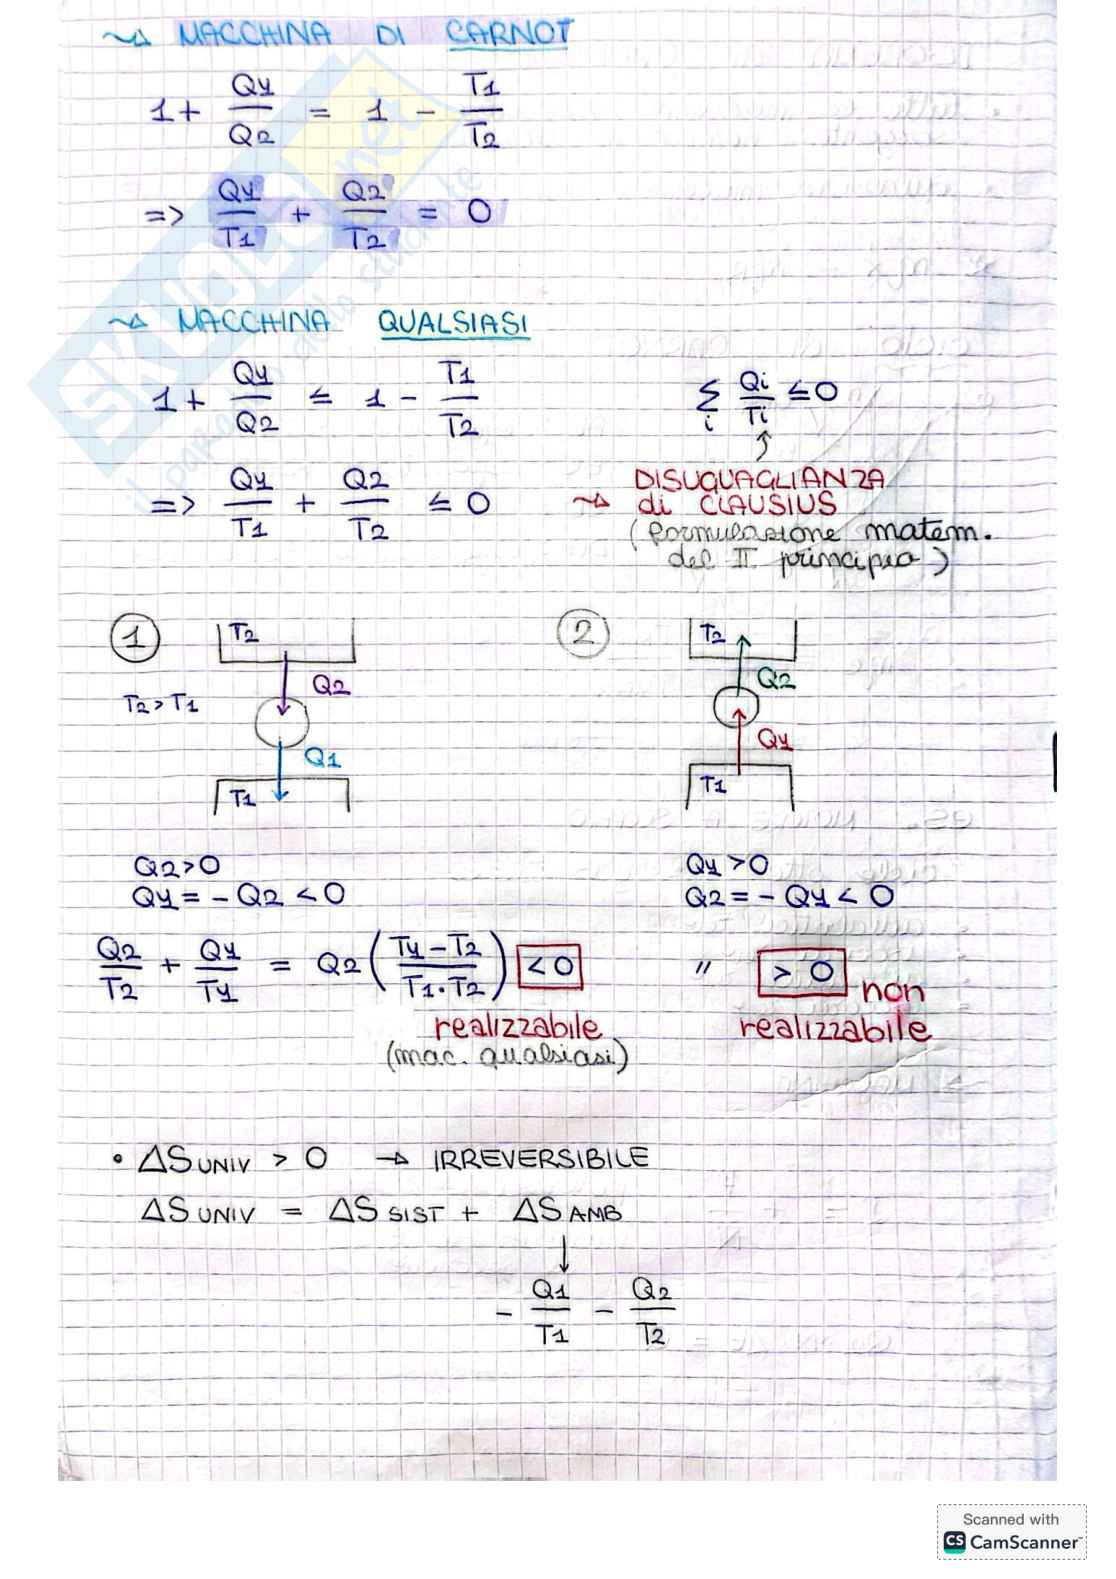 ⤳ MACCHINA DI CARNOT
1 + Q1/Q2 = 1 - T1/T2
=> Q1/T1 + Q2/T2 = 0
⤳ MACCHINA QUALSIASI
1 + Q1/Q2 ≤ 1 - T1/T2
∑i Qi/Ti ≤ 0
=> Q1/T1 + Q2/T2 ≤ 0
⤳ DISUGUAGLIANZA
di CLAUSIUS
(formulazione matem.
del II principio)
1
T2
Q2
T2 > T1
Q1
T1
2
T2
Q2
Q1
T1
Q2 > 0
Q1 = - Q2 < 0
Q1 > 0
Q2 = - Q1 < 0
Q2/T2 + Q1/T1 = Q2 (T1 - T2 / T1 · T2) < 0
realizzabile
(mac. qualsiasi)
" > 0 non
realizzabile
• ΔS UNIV > 0 → IRREVERSIBILE
ΔS UNIV = ΔS SIST + ΔS AMB
↓
- Q1/T1 - Q2/T2
SKUOLA.net
il paradiso dello studente
Scanned with
CS CamScanner